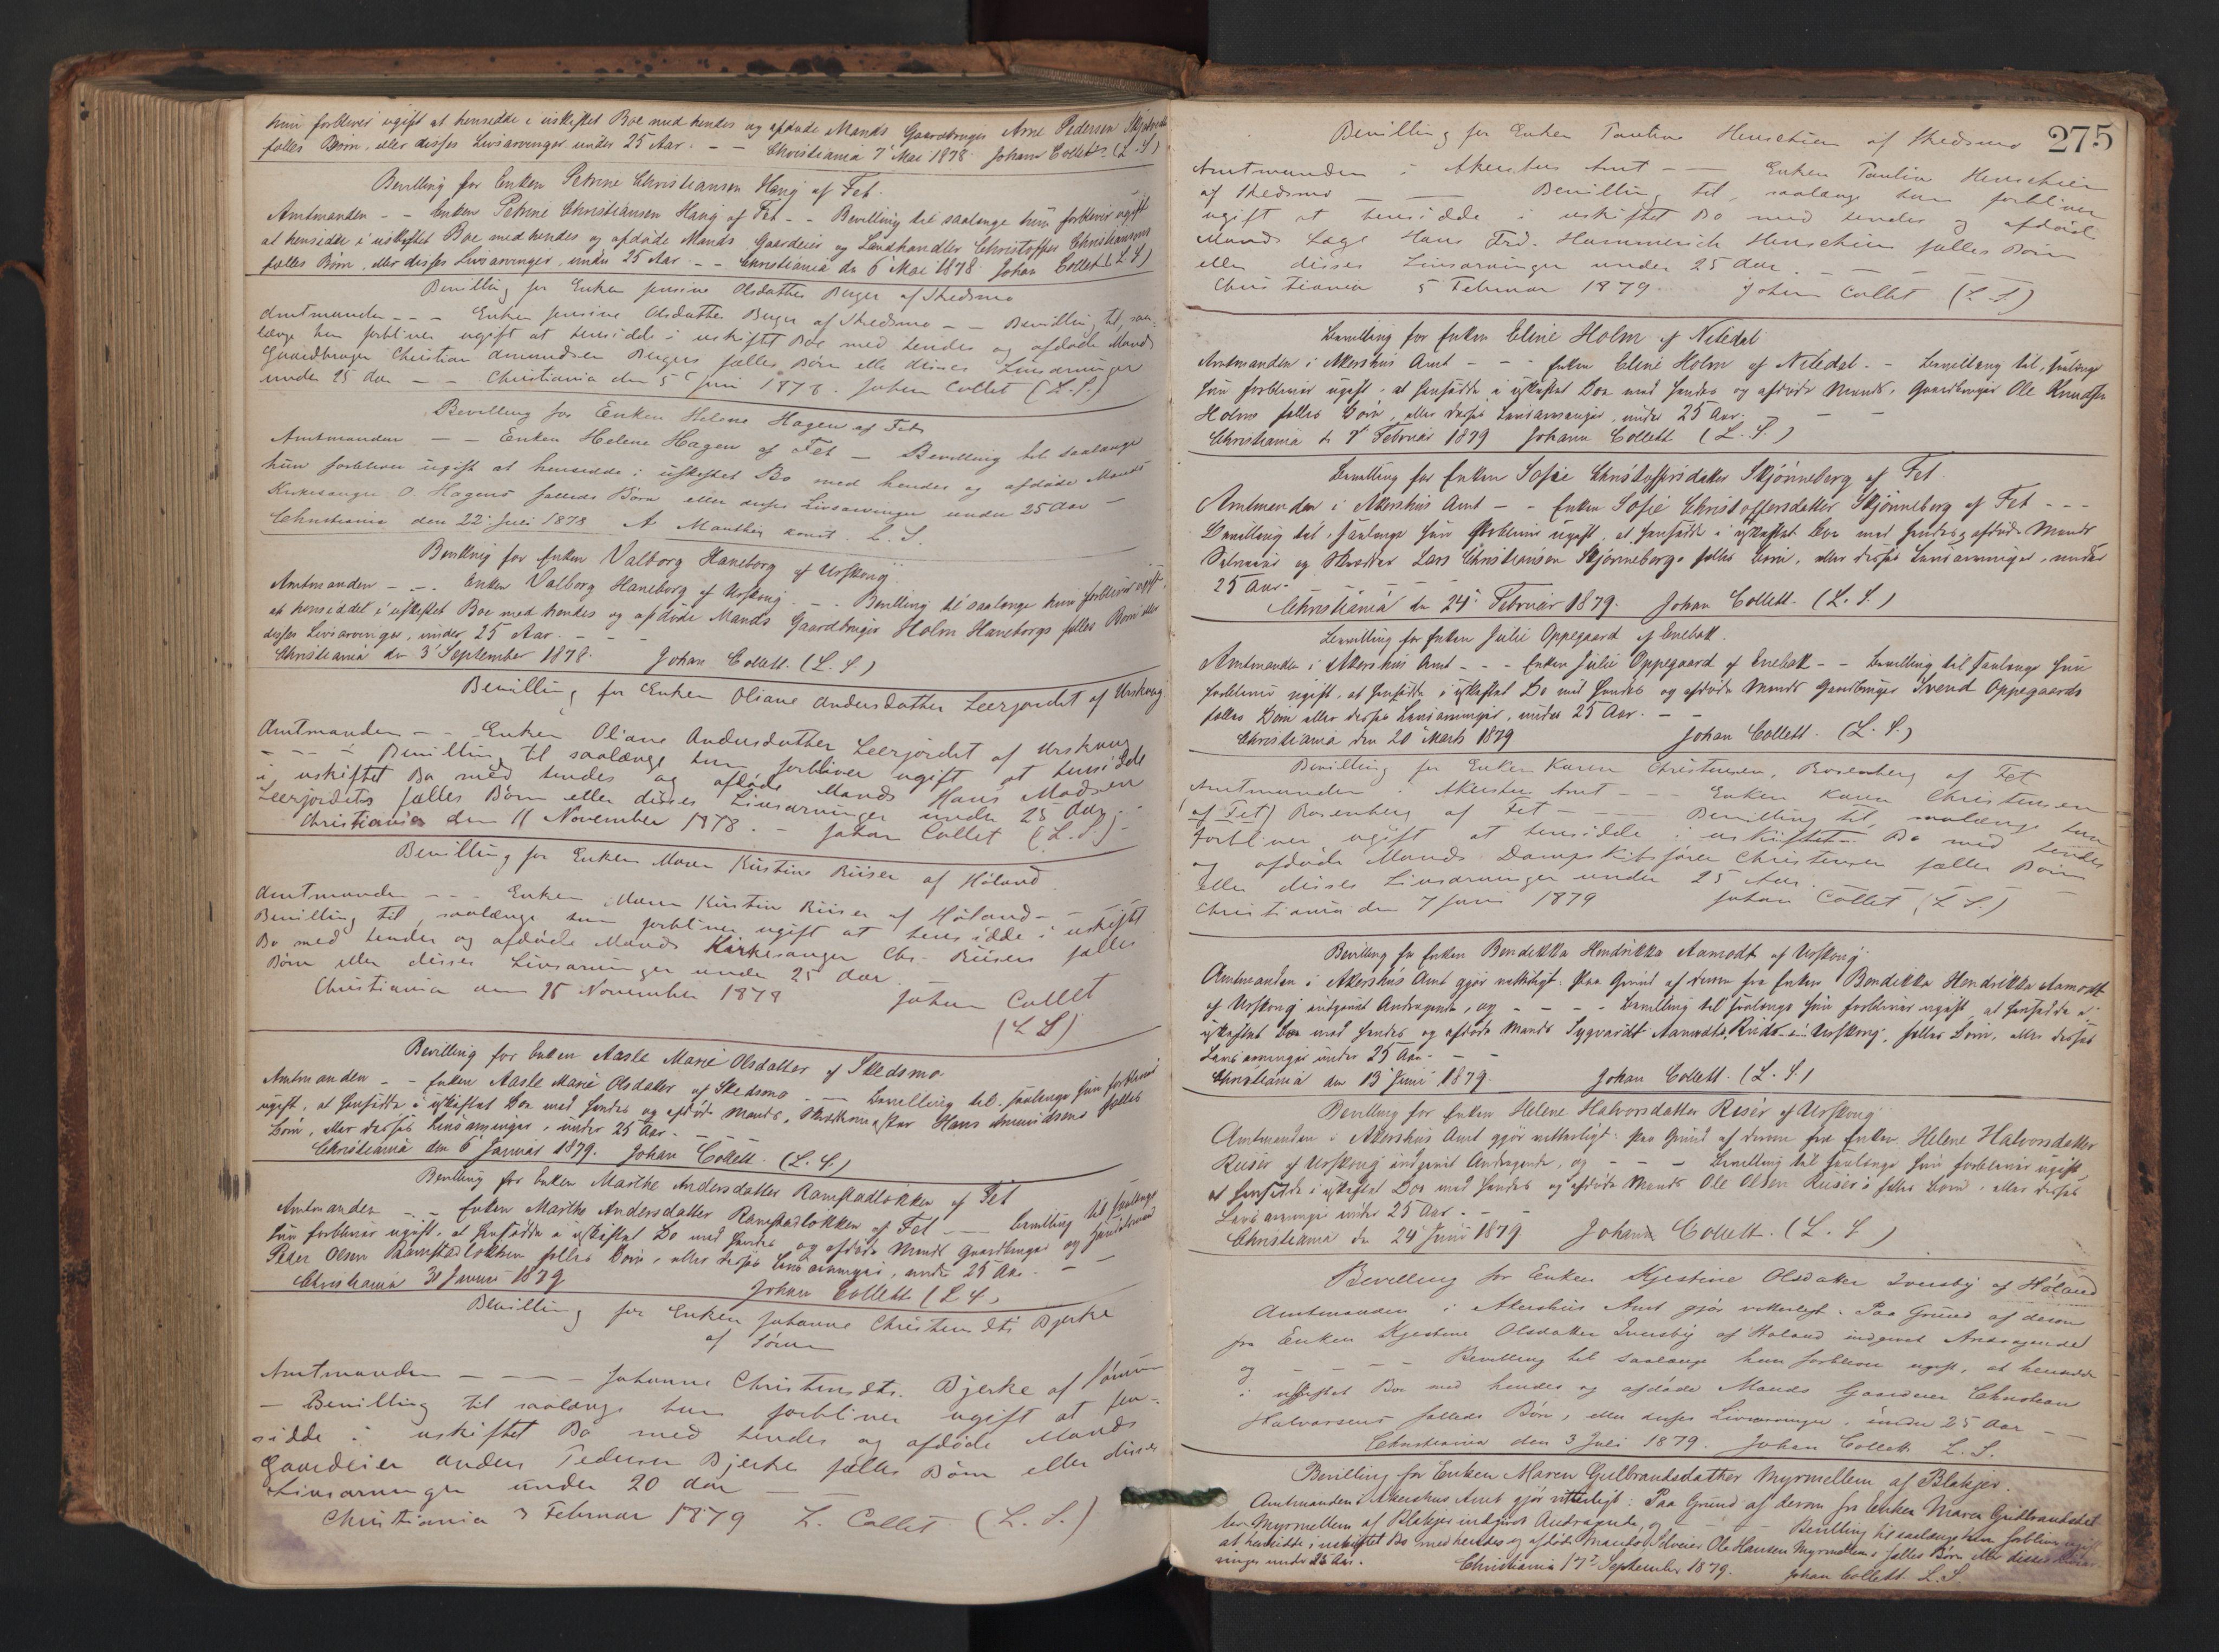 hun forbliver ugift at hensidde i uskiftet Boe med hendes og afdøde Mands Gaardbruger Arne Pedersen
fælles Børn, eller disses Livsarvinger under 25 Aar. – – Christiania 7' Mai 1878. Johan Collett. (L.S)
Bevilling for Enken Petrine Christiansen Haug af Fet.
Amtmanden – – Enken Petrine Christiansen Haug af Fet – – Bevilling til saalænge hun forbliver ugift
at hensidde i uskiftet Boe med hendes og afdøde Mands Gaardeier og Landhandler Christoffer Christiansens
fælles Børn, eller disses Livsarvinger, under 25 Aar. – – Christiania dn 6' Mai 1878. Johan Collett (L.S)
Bevilling for Enken Jensine Olsdatther Berger af Skedsmo
Amtmanden – – – Enken Jensine Olsdatther Berger af Skedsmo – – Bevilling til, saa-
længe hun forbliver ugift at hensidde i uskiftet Boe med hendes og afdøde Mands
Gaardbruger Christian Amundsen Bergers fælles Børn eller disses Livsarvinger
under 25 Aar – – Christiania den 5' Juni 1878. Johan Collet (L.S.)
Bevilling for Enken Helene Hagen af Fet
Amtmanden – – Enken Helene Hagen af Fet – Bevilling til saalænge
hun forbliver ugift at hensidde i uskiftet Bo med hendes og afdøde Mands
Kirkesanger O. Hagens fælleds Børn eller disses Livsarvinger under 25 Aar –
Christiania den 22' Juli 1878. A Manthey const. L.S.
Bevilling for Enken Valborg Haneborg af Urskoug.
Amtmanden – – Enken Valborg Haneborg af Urskoug. – – Bevilling til saalænge hun forbliver ugift
at hensiddet i uskiftet Boe med hendes og afdøde Mands Gaardbruger Holm Haneborgs fælles Børn eller
disses Livsarvinger, under 25 Aar. – – –
Christiania den 3' September 1878. Johan Collett. (L.S.)
Bevilling for Enken Oliane Andersdatther Leerjordet af Urskoug
Amtmanden – – Enken Oliane Andersdatther Leerjordet af Urskoug
– – – Bevilling til saalænge hun forbliver ugift at hensidde
i uskiftet Bo med hendes og afdøde Mands Hans Madsen
Leerjordets fælles Børn eller disses Livsarvinger under 25 Aar. –
Christiania den 11 November 1878. – Johan Collet (L.S.) –
Bevilling for Enken Maren Kirstine Riiser af Høland
Amtmanden – – – Enken Maren Kirstin Riiser af Høland – –
Bevilling til, saalænge hun forbliver ugift at hensidde i uskift
Bo med hendes og afdøde Mands Kirkesanger Chr. Riisers fælles
Børn eller disses Livsarvinger under 25 Aar.
Christiania den 25 November 1878 Johan Collet
(L S)
Bevilling for Enken Aasle Marie Olsdatter af Skedsmo
Amtmanden – – Enken Aasle Marie Olsdatter af Skedsmo – – Bevilling til saalænge hun forbliver
ugift, at hensidde i uskiftet Boe med hendes og afdøde Mands, Hans Amundsens fælles
Børn, eller disses Livsarvinger, under 25 Aar. – – –
Christiania den 6' Januar 1879. Johan Collett. (L.S.)
Bevilling for Enken Marthe Andersdatter Ramstadløkken af Fet
Amtmanden – – Enken Marthe Andersdatter Ramstadløkken af Fet – – Bevilling til saalænge
hun forbliver ugift, at hensidde i uskiftet Bo med hendes og afdøde Mands Gaardbruger og
Peder Olsen Ramstadløkken fælles Børn, eller disses Livsarvinger, under 25 Aar. – –
Christiania 31 Januar 1879 Johan Collett (L S)
Bevilling for Enken Johanne Christensdtr Bjerke
af Sørum
Amtmanden – – – – Johanne Christensdtr. Bjerke af Sørum
– Bevilling til saalænge hun forbliver ugift at hen-
sidde i uskiftet Bo med hendes og afdøde Mands
Gaardeier Anders Pedersen Bjerke fælles Børn eller disses
Livsarvinger under 20 Aar –
Christiania 3 Februar 1879 L. Collet (L.S.)
275
Bevilling for Enken Pauline Henschien af Skedsmo
Amtmanden i Akershus Amt – – Enken Paulin Henschien
af Skedsmo – – Bevilling til, saalænge hun forbliver
ugift at hensidde i uskiftet Bo med hendes og afdøde
Mands Læge Hans Frd. Hammerich Henschien fælles Børn
eller disses Livsarvinger under 25 Aar. – – – –
Christiania 5 Februar 1879. Johan Collet (L.S.)
Bevilling for Enken Eline Holm af Nitedal
Amtmanden i Akershus Amt – – – Enken Eline Holm af Nitedal. – Bevilling til, saalænge
hun forbliver ugift, at hensidde i uskiftet Boe med hendes og afdøde Mands, Gaardbruger Ole Knudsen
Holms fælles Børn, eller disses Livsarvinger, under 25 Aar. – – –
Christiania d. 7' Februar 1879 Johan Collett (L.S.)
Bevilling for Enken Sofie Christoffersdatter Skjønneberg af Fet
Amtmanden i Akershus Amt – – Enken Sofie Christoffersdatter Skjønneberg af Fet – – –
Bevilling til, saalænge hun forbliver ugift, at hensidde i uskiftet Boe med hendes og afdøde Mands
Selveier og Skrædder Lars Christiansen Skjønnebergs fælles Børn, eller disses Livsarvinger, under
25 Aar. –
Christiania dn 24' Februar 1879. Johan Collett. (L.S.)
Bevilling for Enken Julie Oppegaard af Enebak.
Amtmanden i Akershus Amt – – – Enken Julie Oppegaard af Enebak – – Bevilling til saalænge hun
forbliver ugift, at hensidde i uskiftet Bo med hendes og afdøde Mands Gaardbruger Svend Oppegaards
fælles Børn eller disses Livsarvinger, under 25 Aar. – –
Christiania den 20' Marts 1879 Johan Collett. (L.S.)
Bevilling for Enken Karen Christensen, Rosenberg af Fet
Amtmanden i Akershus Amt – – – Enken Karen Christensen
(af Fet) Rosenberg af Fet – – – Bevilling til, saalænge hun
forbliver ugift at hensidde i uskiftet Bo med hendes
og afdøde Mands Dampskibsfører Christensen fælles Børn
eller disses Livsarvinger under 25 Aar.
Christiania den 7 Juni 1879 Johan Collet (L.S.)
Bevilling for Enken Bendikka Hendrikka Aamodt af Urskoug.
Amtmanden i Akershus Amt gjør vitterligt: Paa Grund af derom fra Enken Bendikka Hendrikka Aamodt
af Urskoug indgivet Andragende, og – – – – Bevilling til saalænge hun forbliver ugift, at hensidde i
uskiftet Boe med hendes og afdøde Mands Sygvardt Aamodts, i Urskoug, fælles Børn, eller disses
Livsarvinger under 25 Aar. – –
Christiania den 13' Juni 1879. Johan Collett. (L.S.)
Bevilling for Enken Helene Halvorsdatter Riser af Urskoug
Amtmanden i Akershus Amt gjør vitterligt: Paa Grund af derom fra Enken Helene Halvorsdatter
Riiser af Urskoug indgivet Andragende, og – – – Bevilling til saalænge hun forbliver ugift,
at hensidde i uskiftet Boe med hendes og afdøde Mands Ole Olsen Riiser's fælles Børn, eller disses
Livsarvinger under 25 Aar. – –
Christiania dn 24' Juni 1879. Johan Collett. (L.S)
Bevilling for Enken Kjestine Olsdatter Iversby af Høland
Amtmanden i Akershus Amt gjør vitterligt: Paa Grund af derom
fra Enken Kjestine Olsdatter Iversby af Høland indgivet Andragende
og – – – – Bevilling til saalænge hun forbliver ugift, at hensidde
i uskiftet Boe med hendes og afdøde Mands Gaardeier Christian
Halvorsens fælleds Børn, eller disses Livsarvinger, under 25 Aar – –
Christiania den 3 Juli 1879. Johan Collett L.S.
Bevilling for Enken Maren Gulbrandsdatther Myrmellem af Blakjer.
Amtmanden i Akershus Amt gjør vitterligt: Paa Grund af derom fra Enken Maren Gulbrandsdat-
ter Myrmellem af Blakjer indgivet Andragende, og – – – Bevilling til saalænge hun forbliver ugift
at hensidde i uskiftet Bo med hendes og afdøde Mands, Selveier Ole Hansen Myrmellems fælles Børn eller disses Livsar-
vinger under 25 Aar. Christiania 17' September 1879. Johan Collett. L.S.